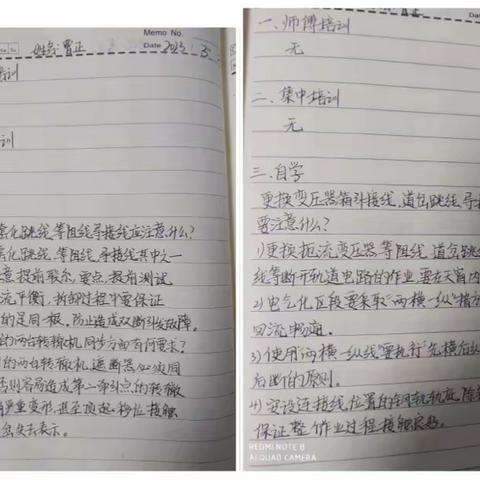 Memo No.
姓名:曹正
Date 2023 5
培训
训
化跳线、等阻线、导接线应注意什么?
化跳线、等阻线、导接线其中之一
意提前联系,要点,提前测试
流平衡,拆卸过程中要保证
的是同一根,防止造成双断引发故障。
的两台转辙机同步方面有何要求?
的两台转辙机,遮断器必须同
否则容易造成第二牵引点的转辙
严重变形,甚至顶起,移位接触
失去表示。
一、师傅培训
无
二、集中培训
无
三、自学
更换变压器箱引接线,道岔跳线、导接
要注意什么?
1)更换扼流变压器、等阻线、道岔跳
线等断开轨道电路的作业,要在天窗内
2)电气化区段要采取“两横一纵”措
回流畅通。
3)使用两横一纵线要执行“先横后纵
后断”的原则。
4)安设连接线,位置的钢轨轨底,除
保证整 作业过程接触良好。
REDMI NOTE 8
AI QUAD CAMERA